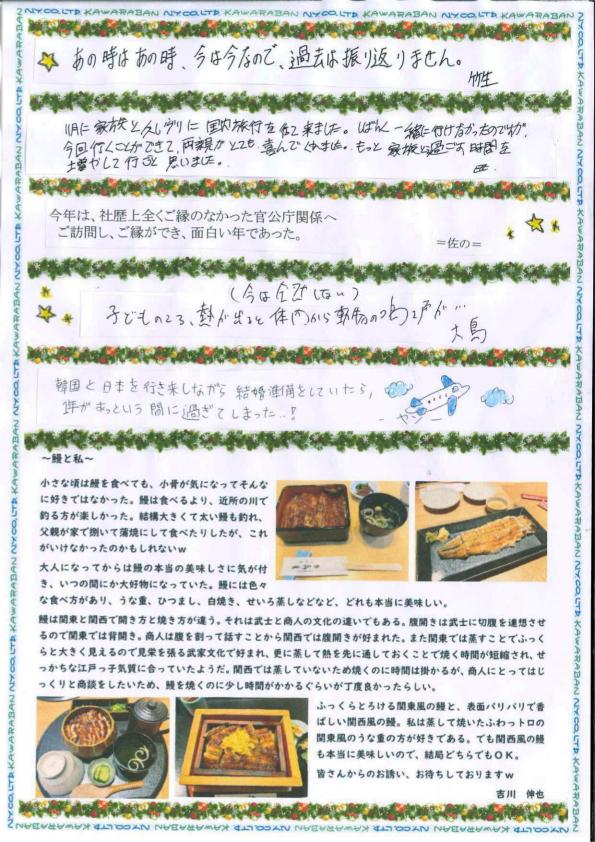 N.Y.CO.,LTD. KAWARABAN
あの時はあの時、今は今なので、過去は振り返りません。
竹生
11月に家族と久しぶりに国内旅行を来ました。しばらく一緒に行けなかったのですが、
今回行くことができて、両親がとても喜んでくれました。もっと家族と過ごす時間を
増やして行こうと思いました。
今年は、社歴上全くご縁のなかった官公庁関係へ
ご訪問し、ご縁ができ、面白い年であった。
=佐の=
(今は全然しない)
子どものころ、熱が出ると体内から動物の鳴き声が…
大鳥
韓国と日本を行き来しながら結婚準備をしていたら,
1年があっという間に過ぎてしまった…!
~鰻と私~
小さな頃は鰻を食べても、小骨が気になってそんな
に好きではなかった。鰻は食べるより、近所の川で
釣る方が楽しかった。結構大きくて太い鰻も釣れ、
父親が家で捌いて蒲焼にして食べたりしたが、これ
がいけなかったのかもしれないw
大人になってからは鰻の本当の美味しさに気が付
き、いつの間にか大好物になっていた。鰻には色々
な食べ方があり、うな重、ひつまし、白焼き、せいろ蒸しなどなど、どれも本当に美味しい。
鰻は関東と関西で開き方と焼き方が違う。それは武士と商人の文化の違いでもある。腹開きは武士に切腹を連想させ
るので関東では背開き。商人は腹を割って話すことから関西では腹開きが好まれた。また関東では蒸すことでふっく
らと大きく見えるので見栄を張る武家文化で好まれ、更に蒸して熱を先に通しておくことで焼く時間が短縮され、せ
っかちな江戸っ子気質に合っていたようだ。関西では蒸していないため焼くのに時間は掛かるが、商人にとってはじ
っくりと商談をしたいため、鰻を焼くのに少し時間がかかるぐらいが丁度良かったらしい。
ふっくらとろける関東風の鰻と、表面パリパリで香
ばしい関西風の鰻。私は蒸して焼いたふわっトロの
関東風のうな重の方が好きである。でも関西風の鰻
も本当に美味しいので、結局どちらでもOK。
皆さんからのお誘い、お待ちしておりますw
吉川 伸也